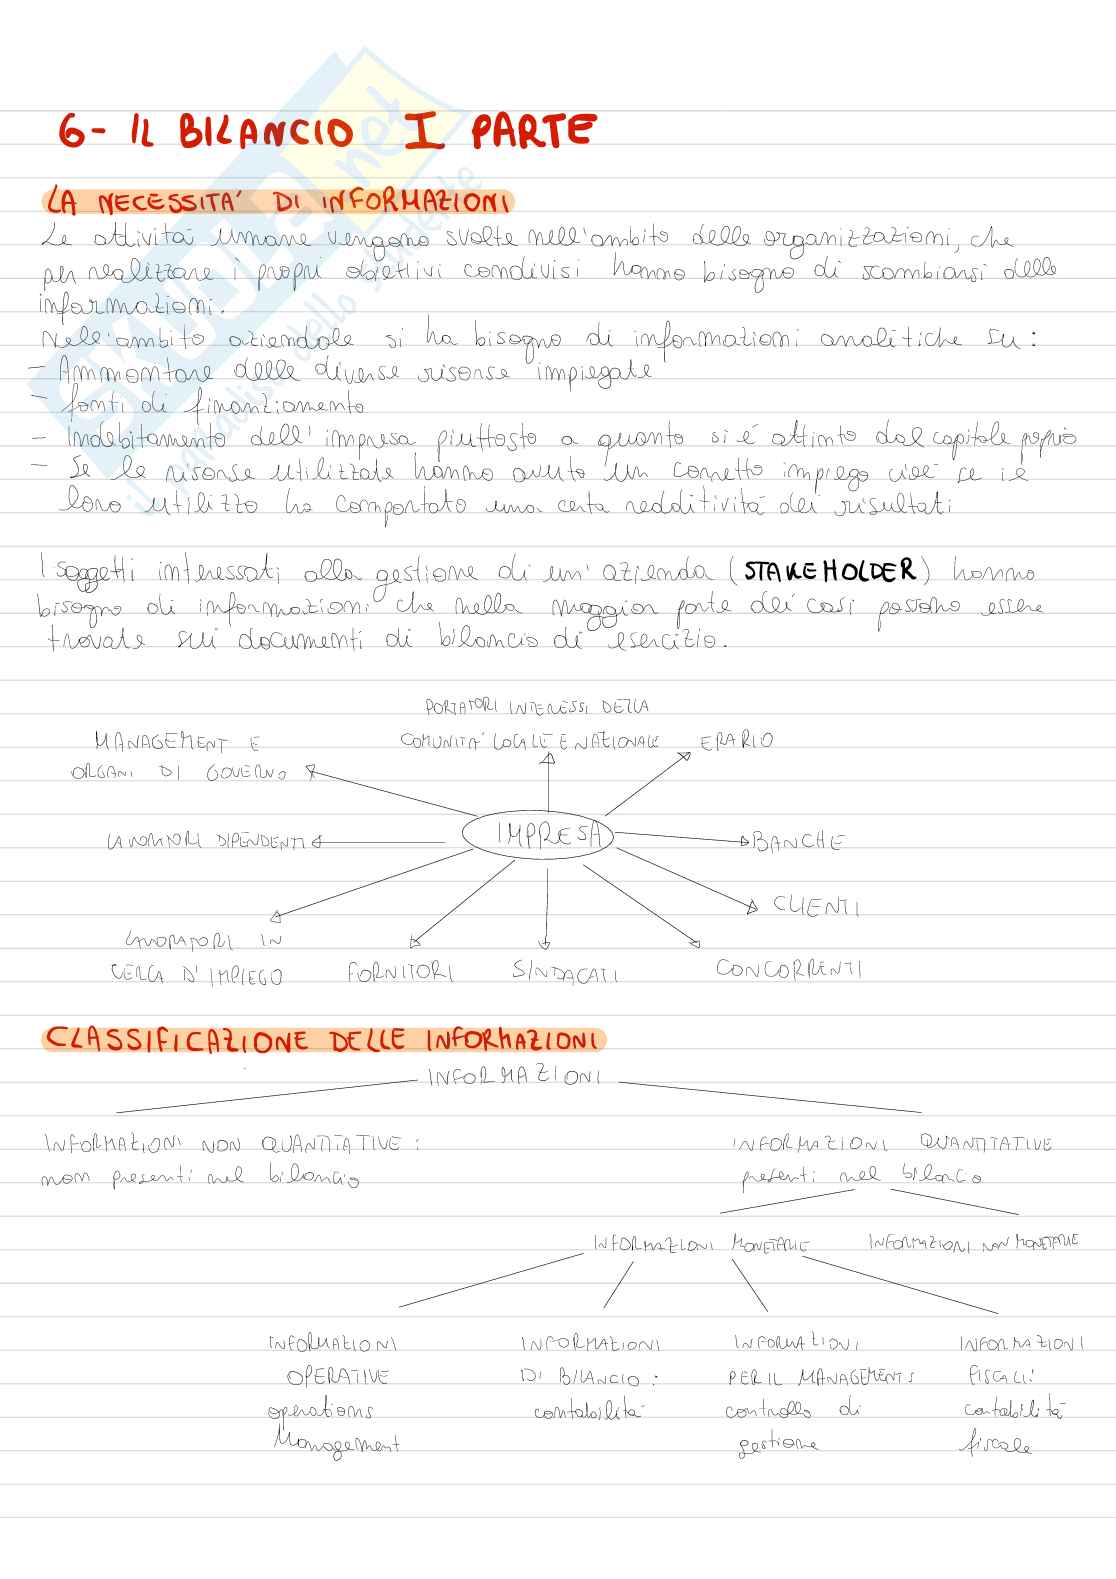 6- IL BILANCIO I PARTE
LA NECESSITA' DI INFORMAZIONI
Le attività umane vengono svolte nell'ambito delle organizzazioni, che
per realizzare i propri obiettivi condivisi hanno bisogno di scambiarsi delle
informazioni.
Nell'ambito aziendale si ha bisogno di informazioni analitiche su:
- Ammontare delle diverse risorse impiegate
- fonti di finanziamento
- Indebitamento dell'impresa piuttosto a quanto si è attinto dal capitale proprio
- Se le risorse utilizzate hanno avuto un corretto impiego cioè se il
loro utilizzo ha comportato una certa redditività dei risultati
I soggetti interessati alla gestione di un'azienda (STAKEHOLDER) hanno
bisogno di informazioni che nella maggior parte dei casi possono essere
trovate sui documenti di bilancio di esercizio.
PORTATORI INTERESSI DELLA
MANAGEMENT E COMUNITA' LOCALE E NAZIONALE ERARIO
ORGANI DI GOVERNO
IMPRESA
LAVORATORI DIPENDENTI BANCHE
CLIENTI
LAVORATORI IN
CERCA D'IMPIEGO FORNITORI SINDACATI CONCORRENTI
CLASSIFICAZIONE DELLE INFORMAZIONI
INFORMAZIONI
INFORMAZIONI NON QUANTITATIVE: INFORMAZIONI QUANTITATIVE
non presenti nel bilancio presenti nel bilancio
INFORMAZIONI MONETARIE INFORMAZIONI NON MONETARIE
INFORMAZIONI INFORMAZIONI INFORMAZIONI INFORMAZIONI
OPERATIVE DI BILANCIO: PER IL MANAGEMENT: FISCALI:
operations contabilità controllo di contabilità
Management gestione fiscale
SKUOLA.net
il paradiso dello studente